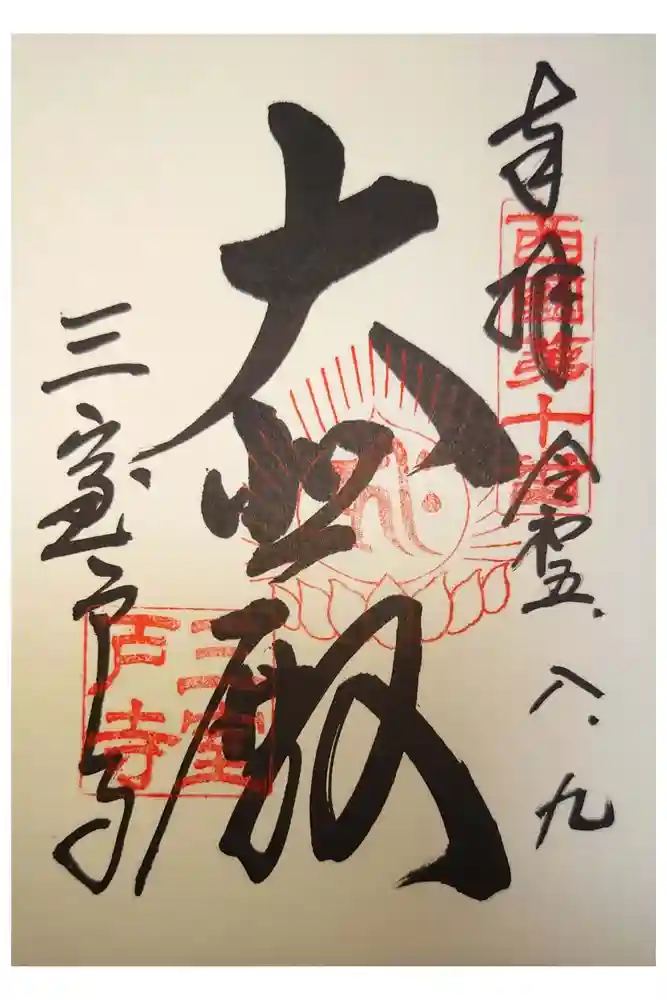 奉拝
令和五.八.九
西國第十番
大悲殿
三室戸寺
三室
戸寺